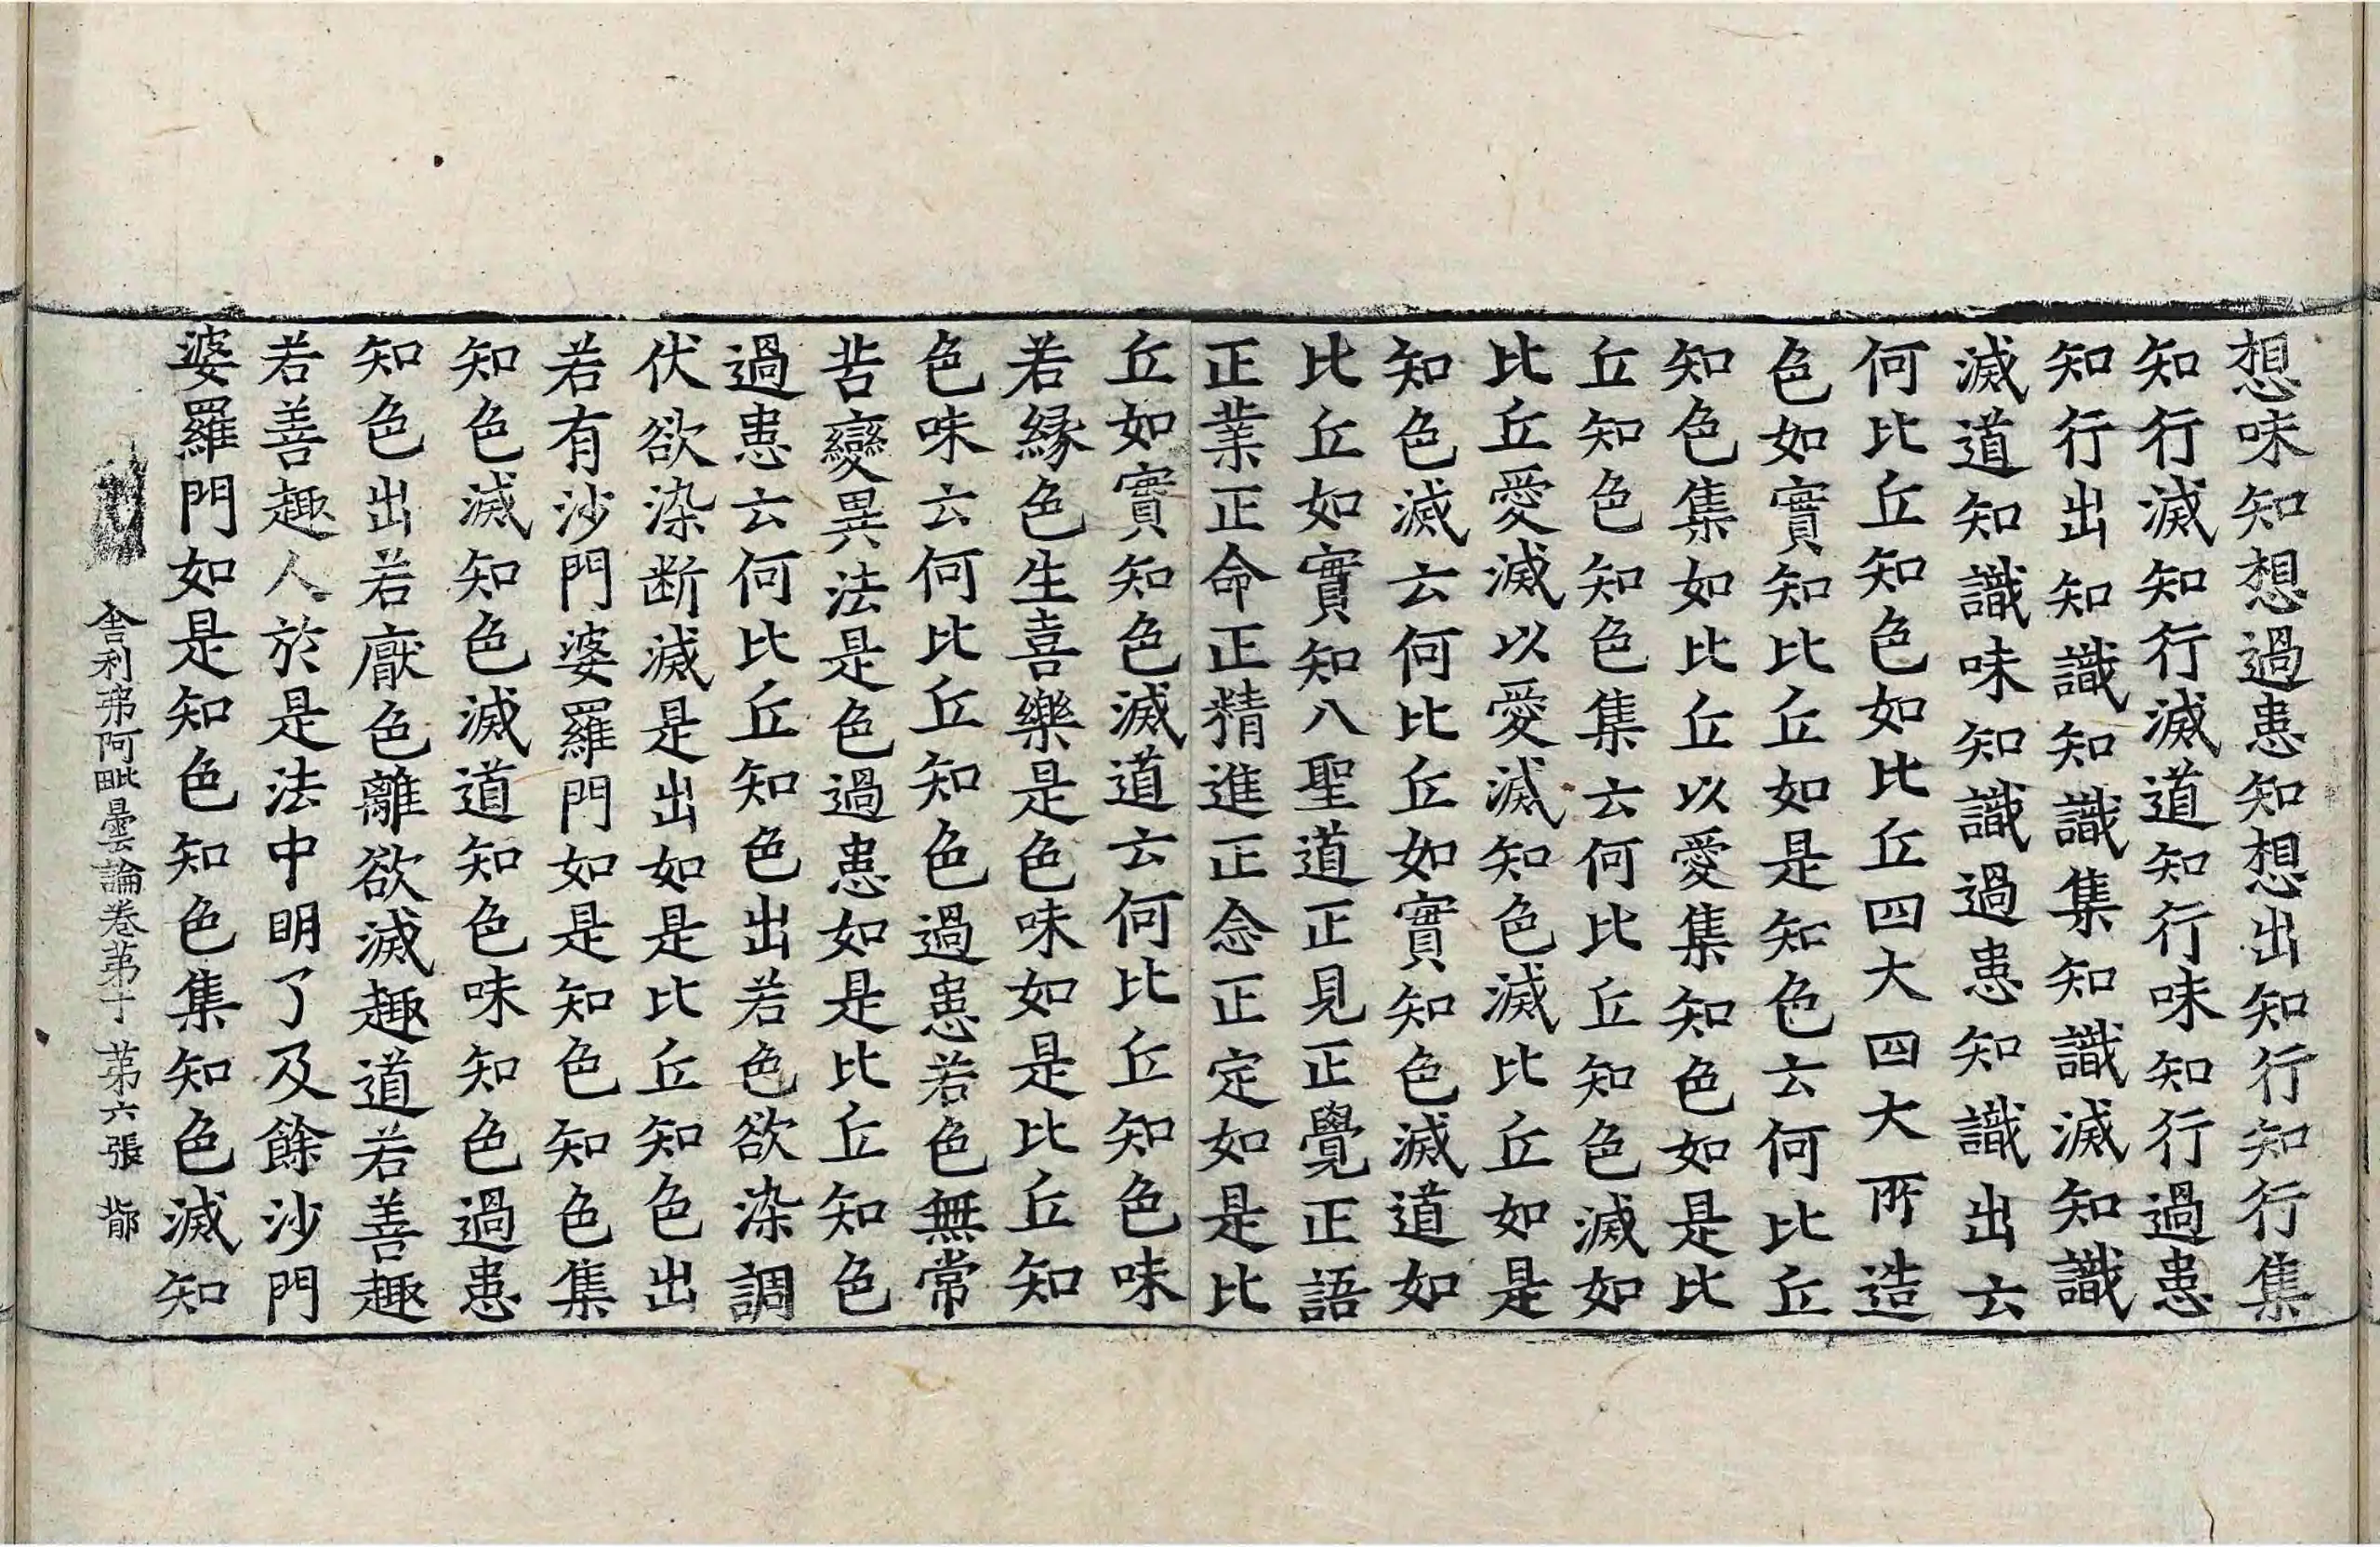 想味知想過患知想出知行知行集
知行滅知行滅道知行味知行過患
知行出知識知識集知識滅知識
滅道知識味知識過患知識出云
何比丘知色如比丘四大四大所造
色如實知比丘如是知色云何比丘
知色集如比丘以愛集知色如是比
丘知色知色集云何比丘知色滅如
比丘愛滅以愛滅知色滅比丘如是
知色滅云何比丘如實知色滅道如
比丘如實知八聖道正見正覺正語
正業正命正精進正念正定如是比
丘如實知色滅道云何比丘知色味
若緣色生喜樂是色味如是比丘知
色味云何比丘知色過患若色無常
苦變異法是色過患如是比丘知色
過患云何比丘知色出若色欲染調
伏欲染断滅是出如是比丘知色出
若有沙門婆羅門如是知色知色集
知色滅知色滅道知色味知色過患
知色出若厭色離欲滅趣道若善趣
若善趣人於是法中明了及餘沙門
婆羅門如是知色知色集知色滅知
舎利弗阿毗曇論卷苐十 苐六張